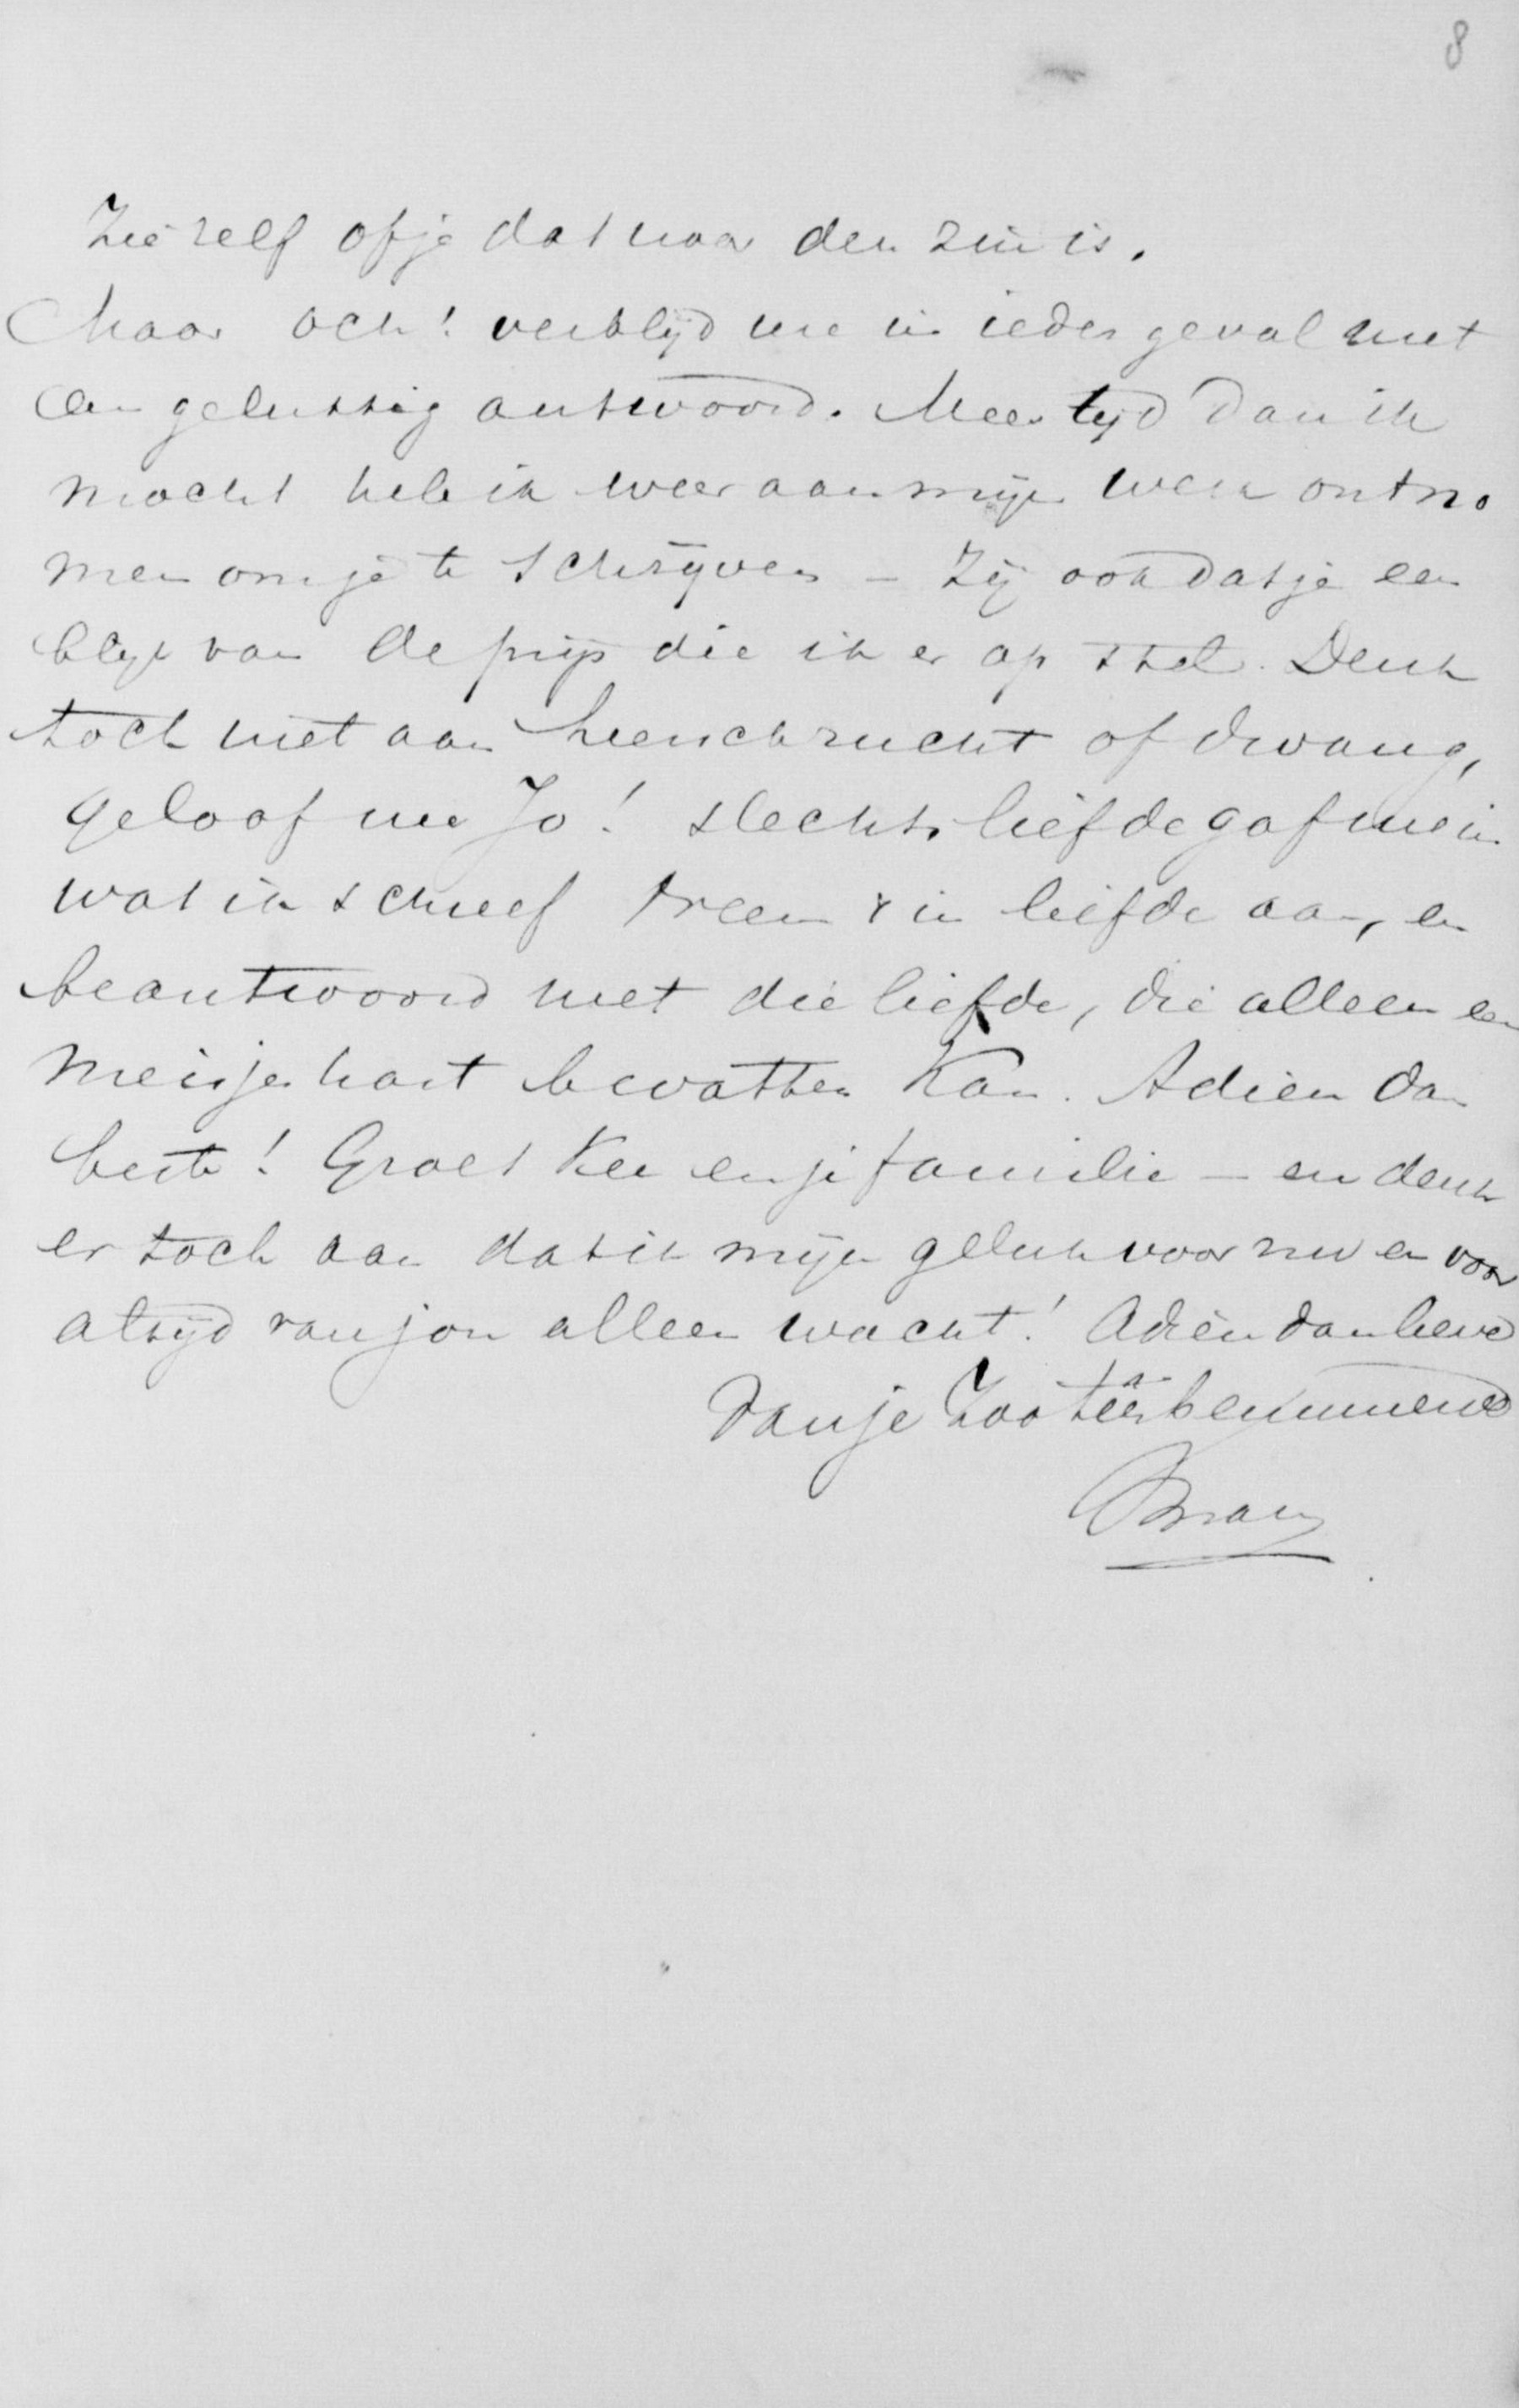 8
Zie zelf of je dat naar den zin is.
Maar och! verblijd me in ieder geval met
een gelukkig antwoord. Meer tijd dan ik
mocht heb ik weer aan mijn werk ontno
men om je te schrijven – Zij ook dat je een
blijk van de prijs die ik er op stel. Denk
toch niet aan heerschzucht of dwang,
geloof me Jo! slechts liefde gaf me in
wat ik schreef neem 't in liefde aan, en
beantwoord met die liefde, die alleen een
meisjeshart bevatten kan. Adieu dan
beste! Groet Kee en je familie – en denk
er toch aan dat ik mijn geluk voor nu en voor
altijd van jou alleen wacht! Adieu dan lieve
van je Zoo teêrbeminnende
Bram